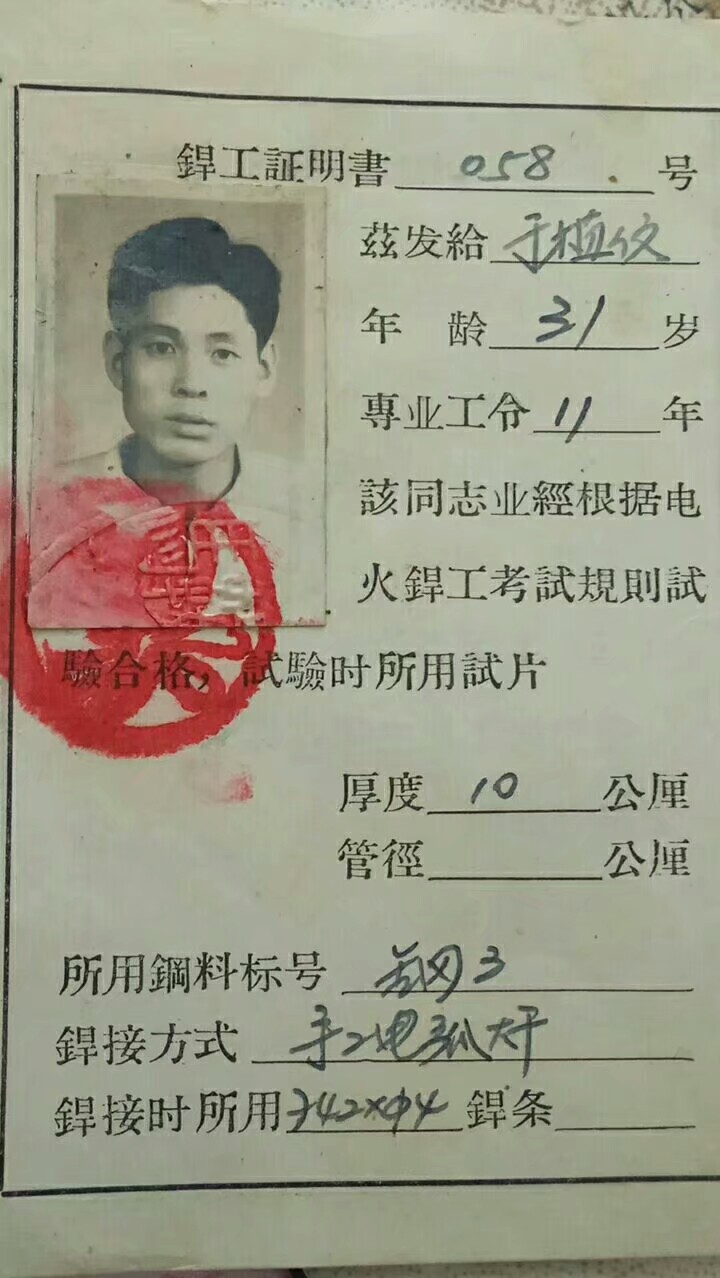 銲工証明書 058 号
茲发給 于植纹
年 龄 31 岁
專业工令 11 年
該同志业經根据电
火銲工考試規則試
驗合格，試驗时所用試片
厚度 10 公厘
管徑 公厘
所用鋼料标号 钢3
銲接方式 手工电弧
銲接时所用 342×Φ4 銲条